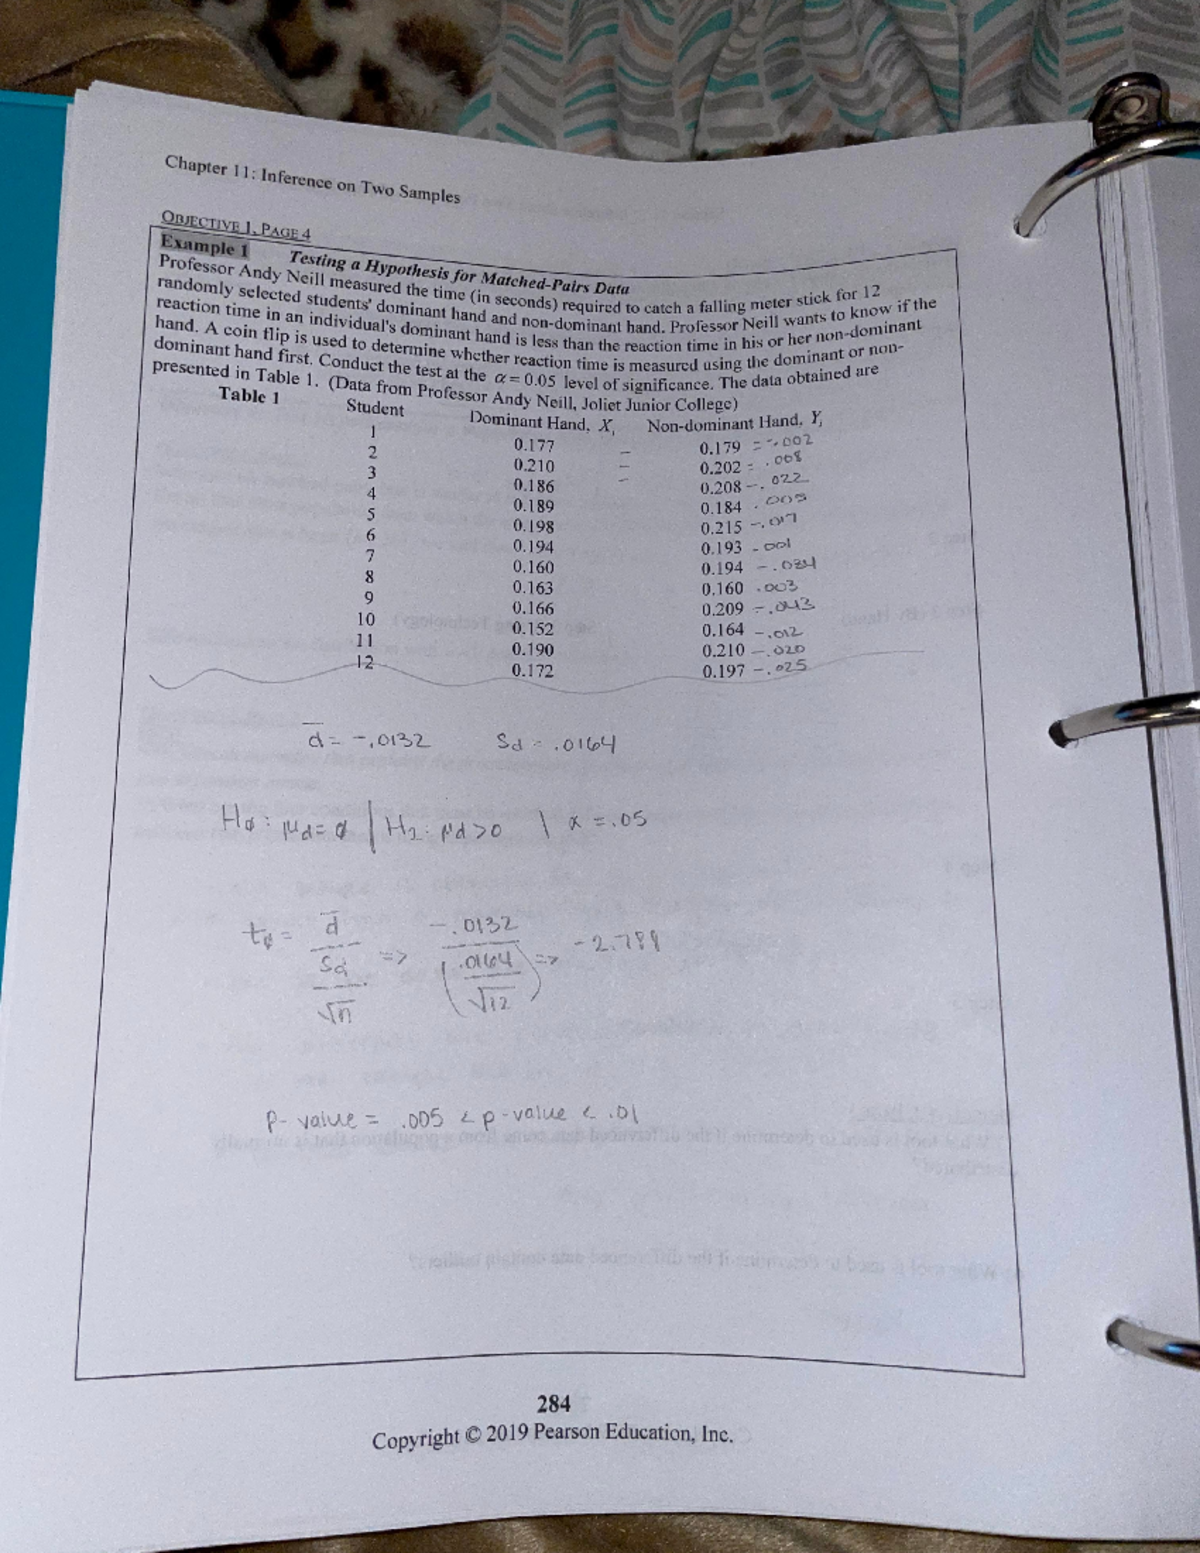 Chapter 11: Inference on Two Samples
OBJECTIVE 1, PAGE 4
Example 1 Testing a Hypothesis for Matched-Pairs Data
Professor Andy Neill measured the time (in seconds) required to catch a falling meter stick for 12
randomly selected students' dominant hand and non-dominant hand. Professor Neill wants to know if the
reaction time in an individual's dominant hand is less than the reaction time in his or her non-dominant
hand. A coin flip is used to determine whether reaction time is measured using the dominant or non-
dominant hand first. Conduct the test at the α = 0.05 level of significance. The data obtained are
presented in Table 1. (Data from Professor Andy Neill, Joliet Junior College)
Table 1 Student Dominant Hand, Xi Non-dominant Hand, Yi
1 0.177 – 0.179 = -.002
2 0.210 – 0.202 = .008
3 0.186 – 0.208 -.022
4 0.189 0.184 .005
5 0.198 0.215 -.017
6 0.194 0.193 .001
7 0.160 0.194 -.034
8 0.163 0.160 .003
9 0.166 0.209 -.043
10 0.152 0.164 -.012
11 0.190 0.210 -.020
12 0.172 0.197 -.025
d̄ = -.0132 Sd = .0164
Hø: μd = ø | H2: μd > 0 | α = .05
tø = d̄ / (Sd / √n) => -.0132 / (.0164 / √12) => -2.788
P-value = .005 < p-value < .01
284
Copyright © 2019 Pearson Education, Inc.